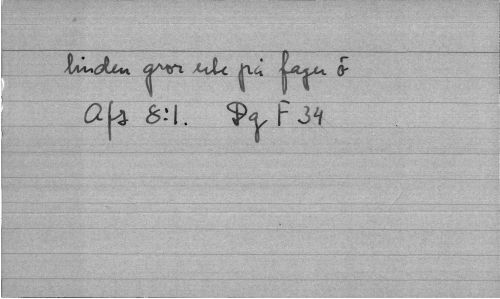 linden gror ute på fager ö
Afz 8:1. Dg F 34